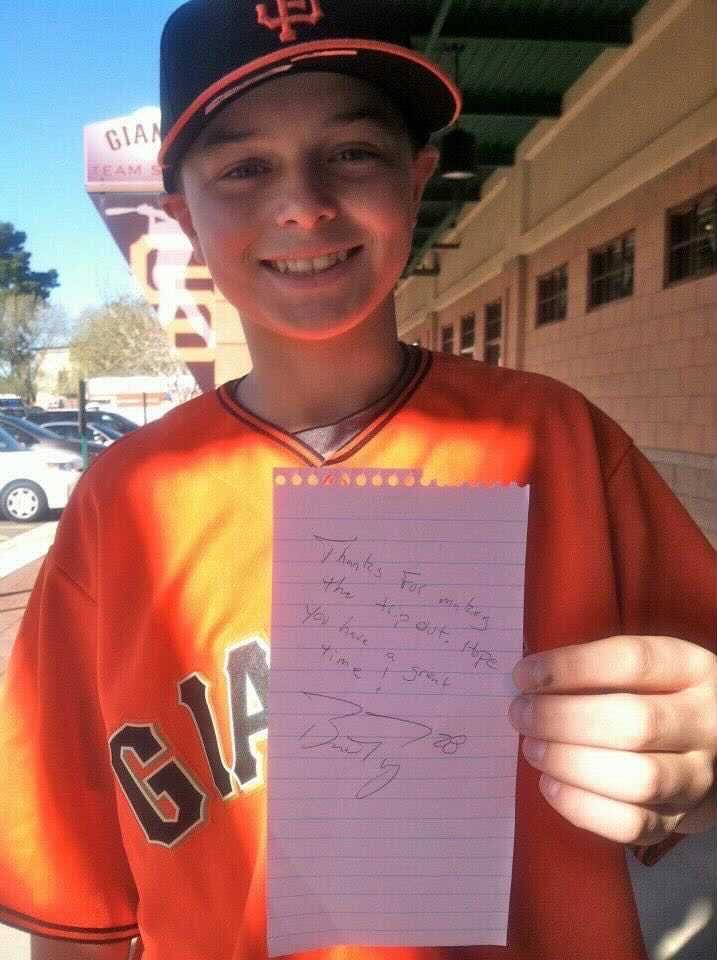 SF
GIAN
TEAM S
SF
Thanks For making
the trip out. Hope
You have a great
time!
28
GIA